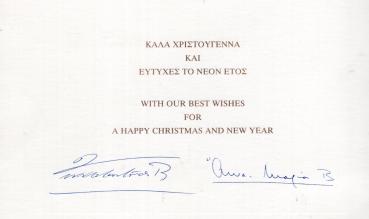 ΚΑΛΑ ΧΡΙΣΤΟΥΓΕΝΝΑ
ΚΑΙ
ΕΥΤΥΧΕΣ ΤΟ ΝΕΟΝ ΕΤΟΣ
WITH OUR BEST WISHES
FOR
A HAPPY CHRISTMAS AND NEW YEAR
Άννα-Μαρία Β